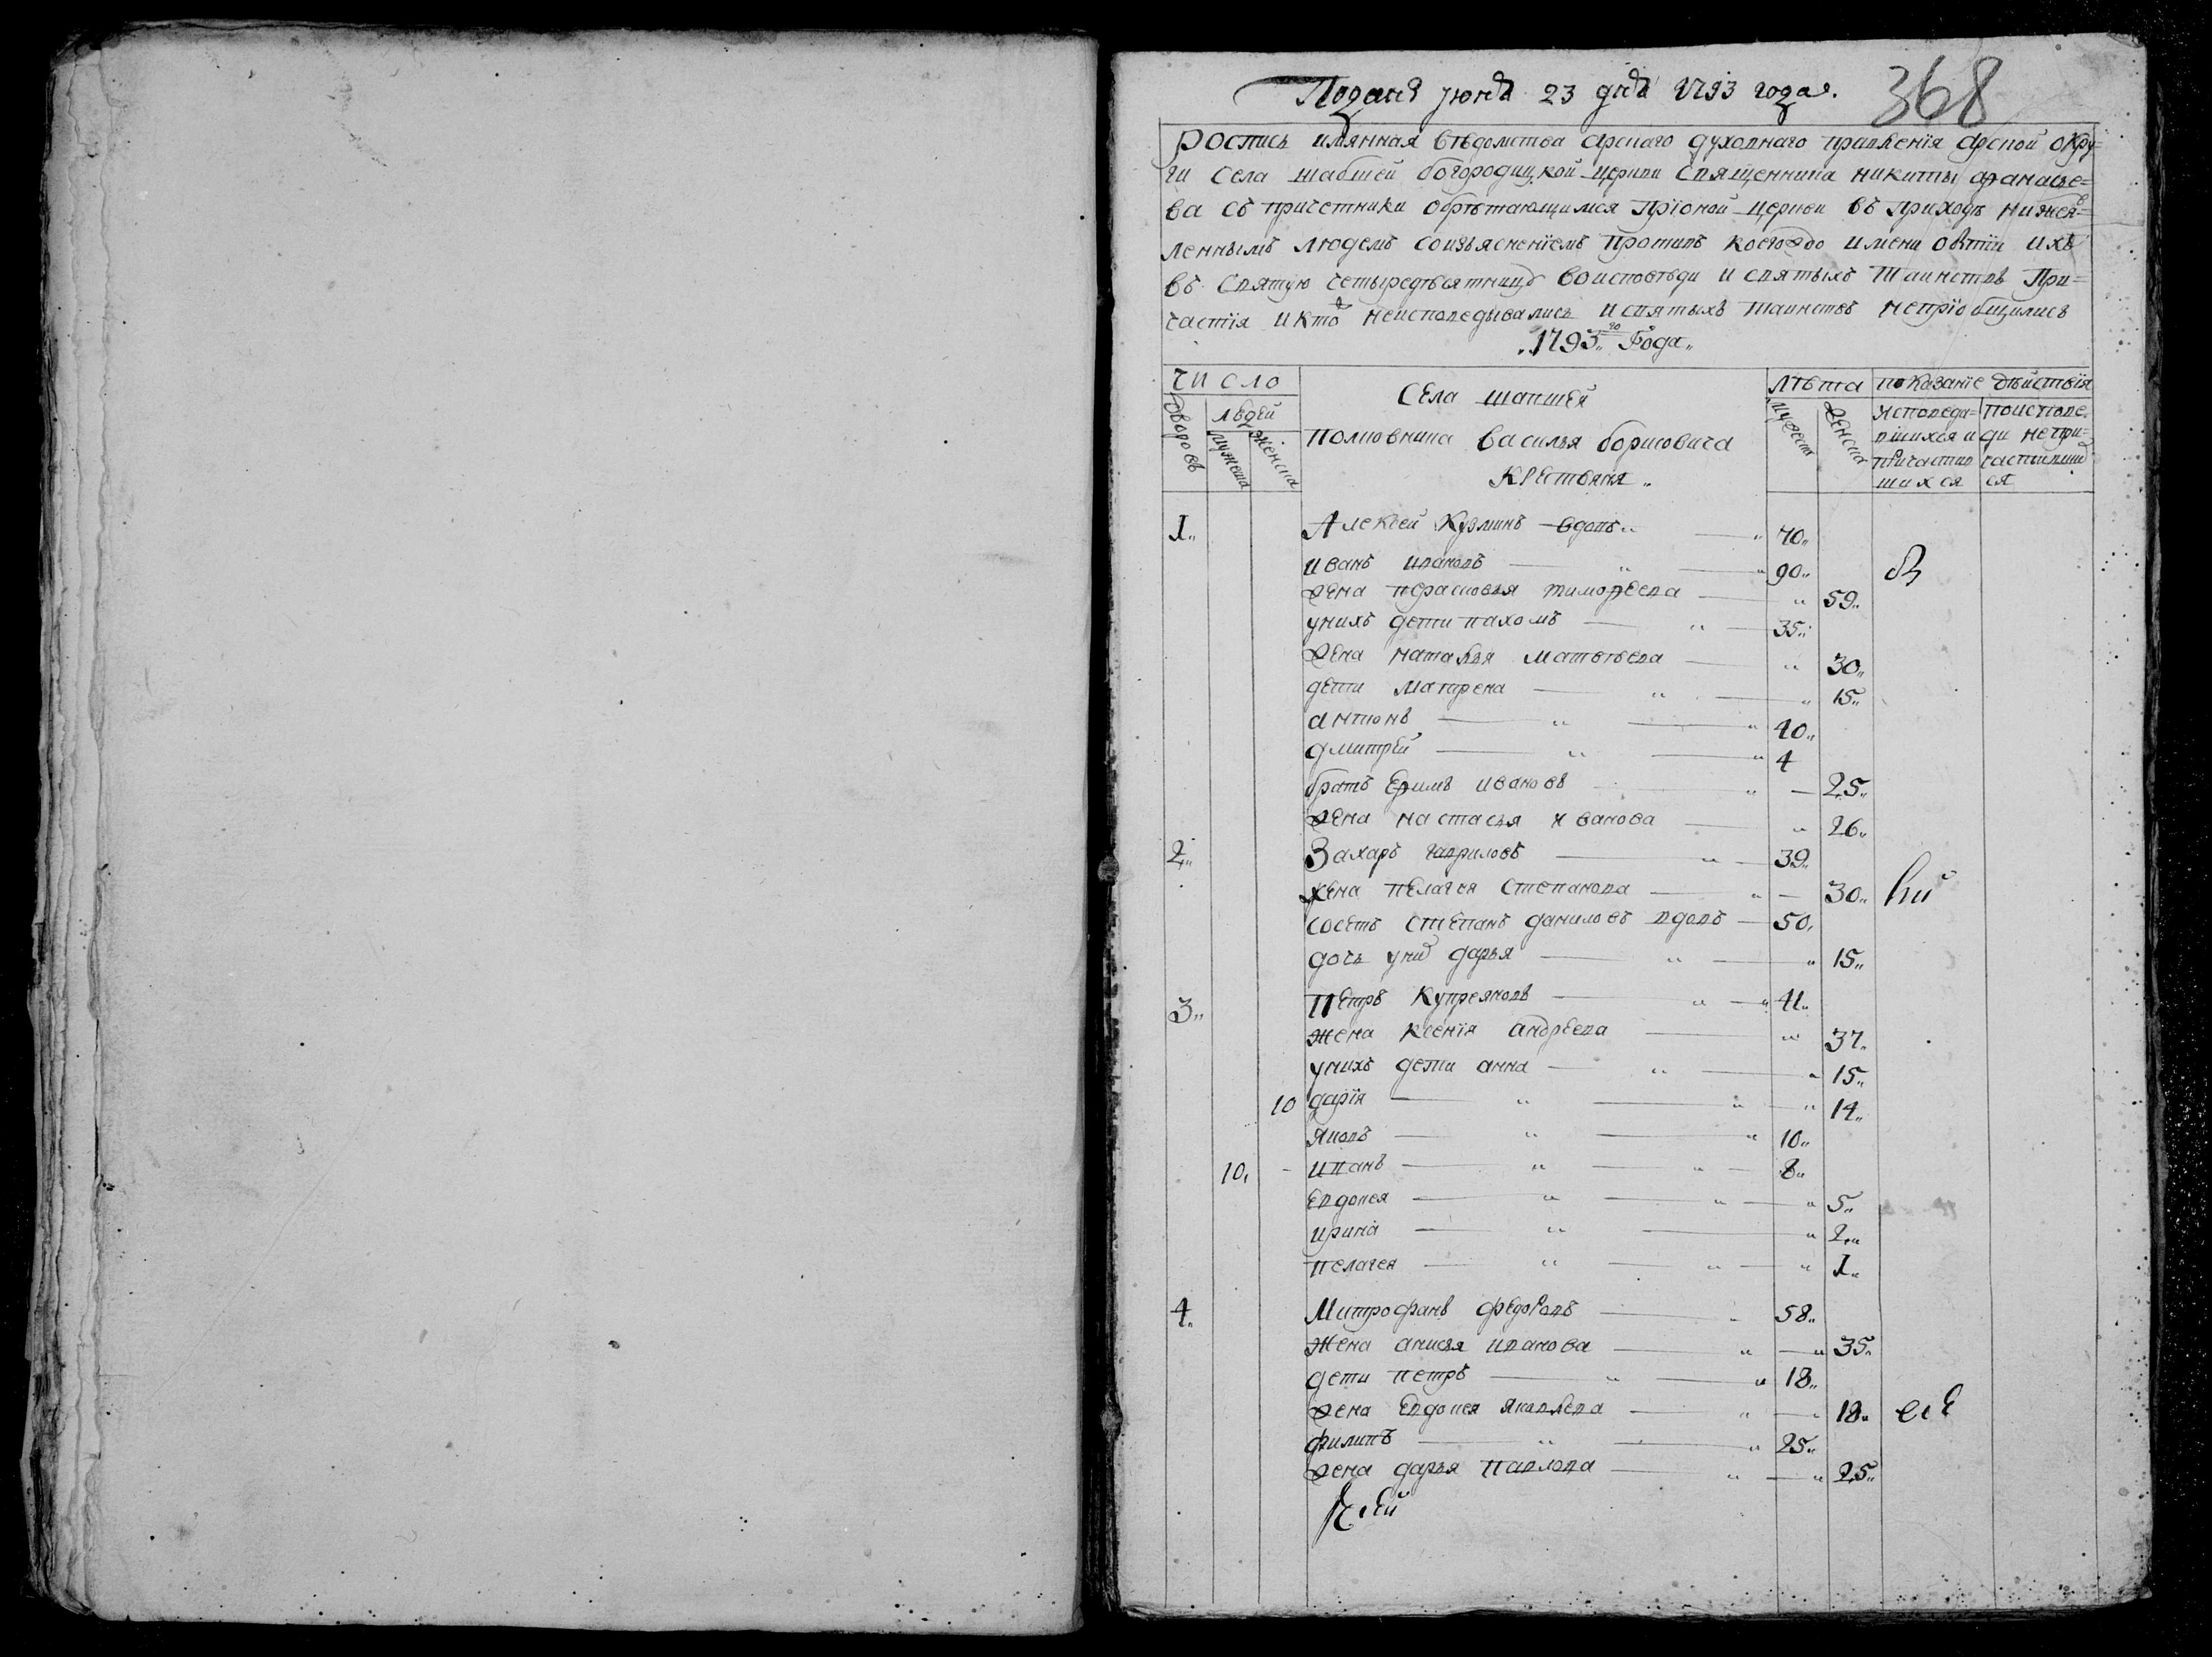 Подана июня 23 дня 1793 года.
368
Роспись имянная ведомства арскаго духовнаго правления арской окру=
ги села шапшей богородицкой церкви священника никиты афанасье=
ва съ причетники обретающимися при оной церкви въ приходе нижея=
вленнымъ людемъ со изъяснениемъ противъ коегождо имени о бытии ихъ
въ святую четыредесятницу во исповеди и святыхъ таинствъ при=
частия и кто неисповедывались и святыхъ таинствъ неприобщились
„1793„ го года„
число
дворовъ
людей
мужеска
женска
села шапшей
полковника василья борисовича
крестьяня„
лета
мужеска
женска
показание действия
исповеда=вшихся и причастившихся
по исповеди непричастившися
1„ Алексей Кузминъ вдовъ„ 70„
иванъ ивановъ „ 90„
жена прасковья тимофеева „ 59„
у нихъ дети пахомъ „ 35„
жена наталья матвеева „ 30„
дети матрена „ „ 15„
антонъ „ „ 10„
дмитрей „ „ 4
братъ ефимъ ивановъ „ — 25„
жена настасья иванова „ 26„
2„ Захаръ гавриловъ „ 39„
жена пелагея степанова „ — 30„
соседъ степанъ даниловъ вдовъ — 50„
дочь у нево дарья „ „ 15„
3„ Петръ Купреяновъ „ „ 41„
жена ксения андреева „ 37„
у нихъ дети анна „ „ 15„
10 дария „ „ „ 14„
яковъ „ „ 10„
10„ - иванъ „ „ 8„
евдокея „ „ „ 5„
ирина „ „ 2„
пелагея „ „ „ 1„
4„ Митрофанъ федоровъ „ 58„
жена анисья иванова „ — „ 35„
дети петръ „ „ 18„
жена евдокея яковлева „ — 18„
филипъ „ „ 25„
жена дарья павлова „ — „ 25„